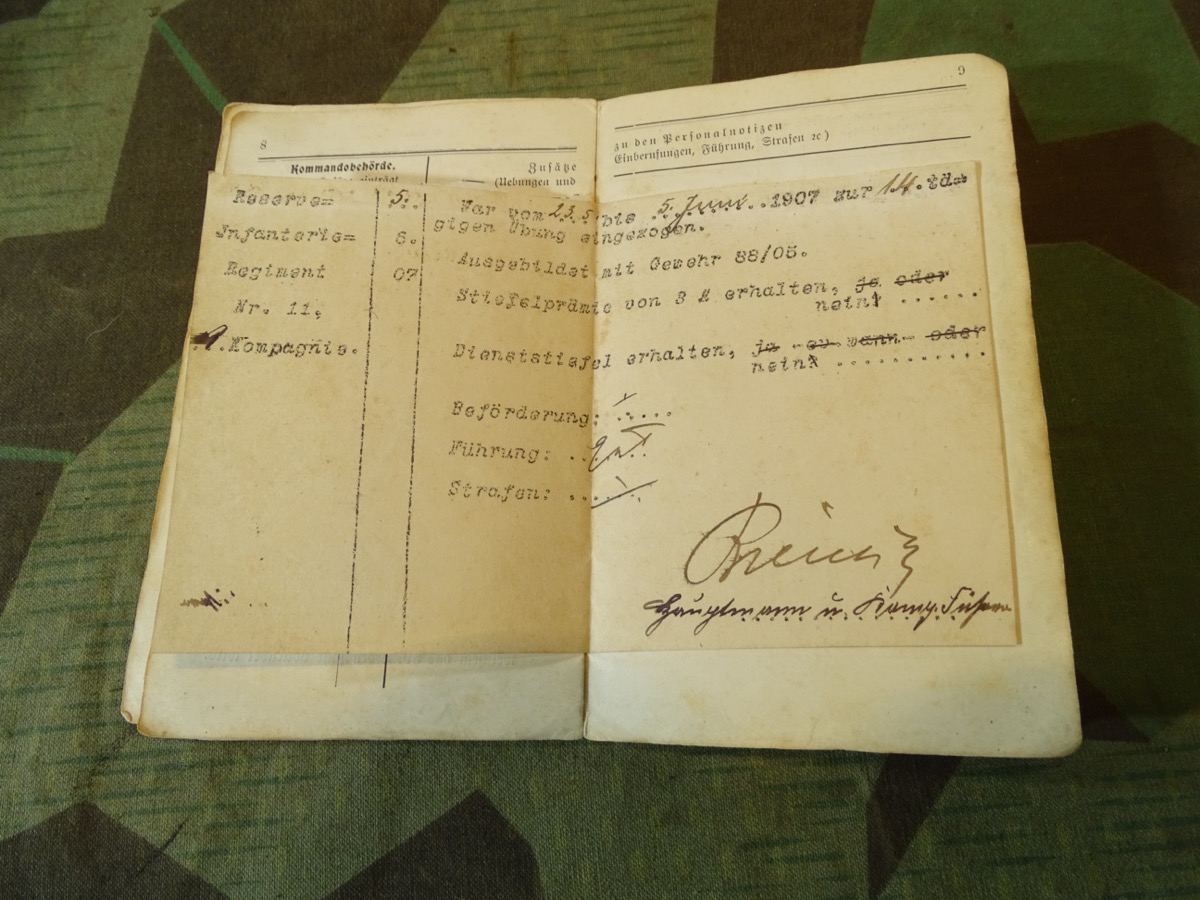 8
Kommandobehörde,
Zusätze
(Uebungen und
9
zu den Personalnotizen
Einberufungen, Führung, Strafen ꝛc)
Reserve=
Infanterie=
Regiment
Nr. 11,
9. Kompagnie.
5.
6.
07
War vom 23.5. bis 5. Juni 1907 zur 14. tä=
gigen Übung eingezogen.
Ausgebildet mit Gewehr 88/05.
Stiefelprämie von 3 M erhalten, ja oder
nein! ......
Dienststiefel erhalten, ja ev. wann oder
nein! ...........
Beförderung: .....
Führung: gut
Strafen: ....
Hauptmann u. Komp. Führer